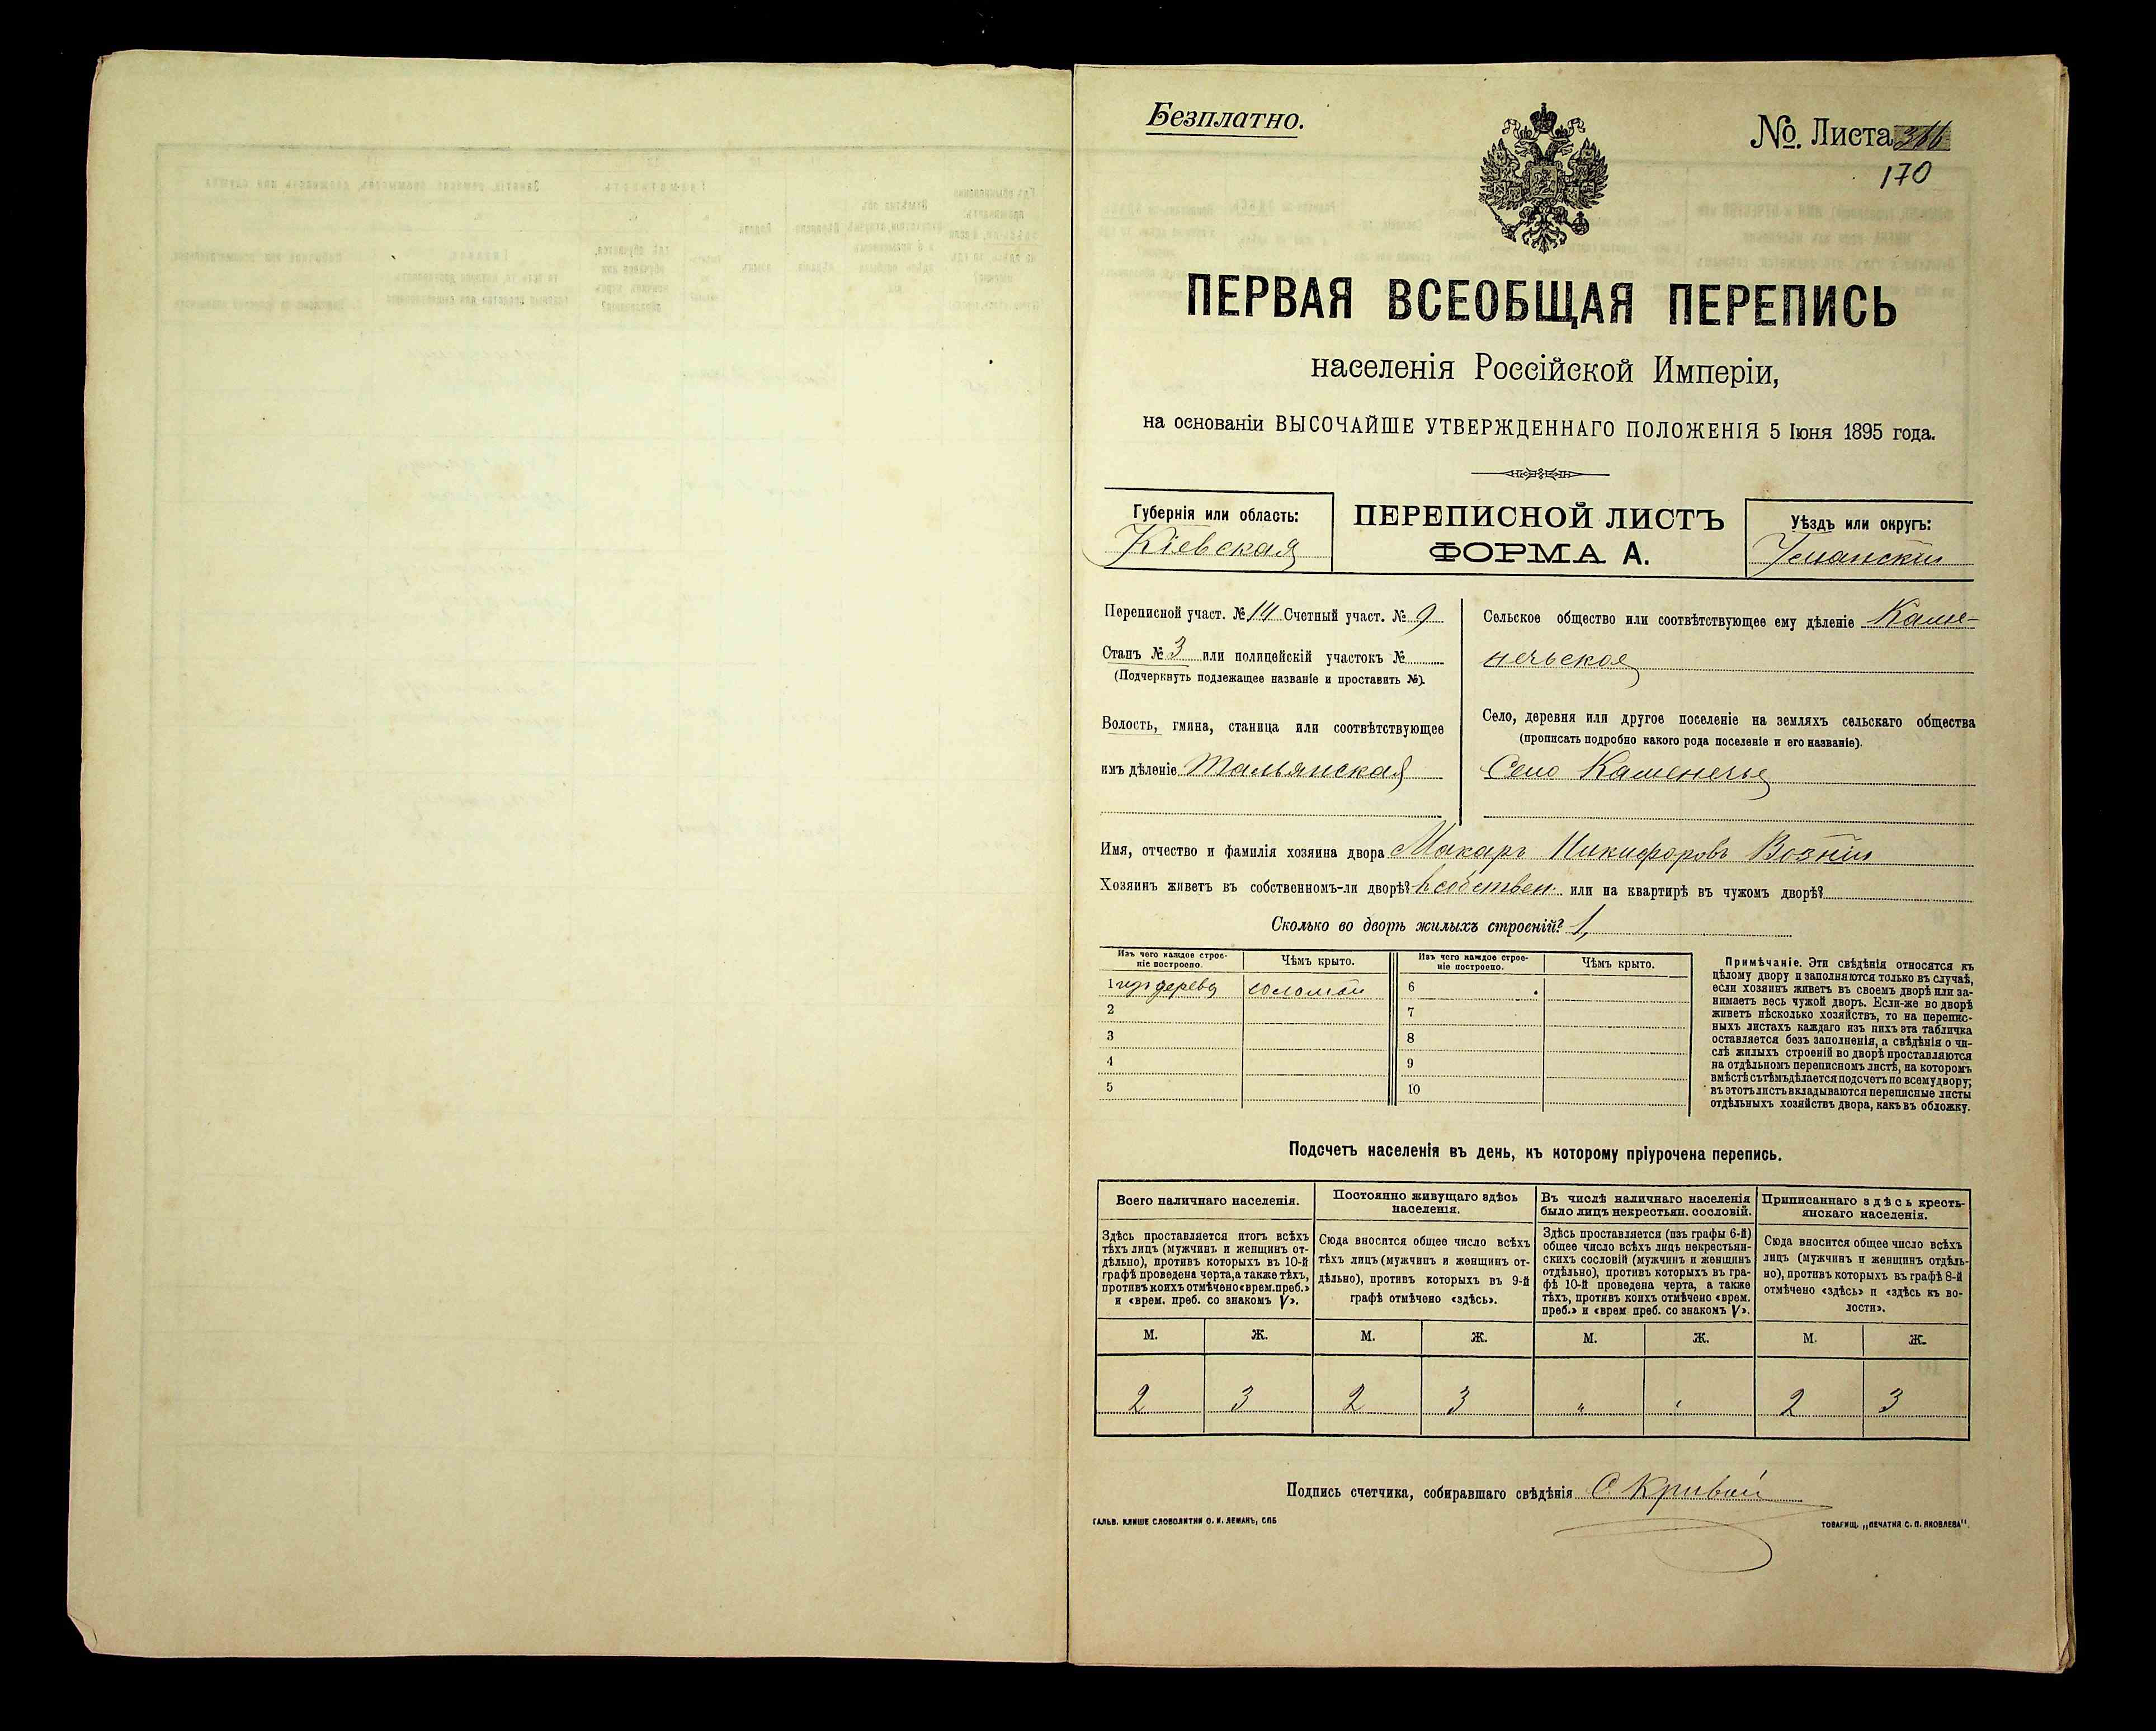 Безплатно.
№. Листа
170
ПЕРВАЯ ВСЕОБЩАЯ ПЕРЕПИСЬ
населенія Россійской Имперіи,
на основаніи ВЫСОЧАЙШЕ УТВЕРЖДЕННАГО ПОЛОЖЕНІЯ 5 Іюня 1895 года.
Губернія или область:
Кіевская
ПЕРЕПИСНОЙ ЛИСТЪ
ФОРМА А.
Уѣздъ или округъ:
Уманскій
Переписной участ. № 14 Счетный участ. № 9
Станъ № 3 или полицейскій участокъ №
(Подчеркнуть подлежащее названіе и проставить №).
Волость, гмина, станица или соотвѣтствующее
имъ дѣленіе Тальянская
Сельское общество или соотвѣтствующее ему дѣленіе Каме-
нечьское
Село, деревня или другое поселеніе на земляхъ сельскаго общества
(прописать подробно какого рода поселеніе и его названіе).
Село Каменечье
Имя, отчество и фамилія хозяина двора Макаръ Никифоровъ Возній
Хозяинъ живетъ въ собственномъ-ли дворѣ? в собствен. или на квартирѣ въ чужомъ дворѣ?
Сколько во дворѣ жилыхъ строеній? 1,
Изъ чего каждое строе-
ніе построено.
Чѣмъ крыто.
Изъ чего каждое строе-
ніе построено.
Чѣмъ крыто.
1 изъ дерева соломой 6
2 7
3 8
4 9
5 10
Примѣчаніе. Эти свѣдѣнія относятся къ
цѣлому двору и заполняются только въ случаѣ,
если хозяинъ живетъ въ своемъ дворѣ или за-
нимаетъ весь чужой дворъ. Если-же во дворѣ
живетъ нѣсколько хозяйствъ, то на перепис-
ныхъ листахъ каждаго изъ нихъ эта табличка
оставляется безъ заполненія, а свѣдѣнія о чи-
слѣ жилыхъ строеній во дворѣ проставляются
на отдѣльномъ переписномъ листѣ, на которомъ
вмѣстѣ съ тѣмъ дѣлается подсчетъ по всему двору;
въ этотъ листъ вкладываются переписные листы
отдѣльныхъ хозяйствъ двора, какъ въ обложку.
Подсчетъ населенія въ день, къ которому пріурочена перепись.
Всего наличнаго населенія.
Здѣсь проставляется итогъ всѣхъ
тѣхъ лицъ (мужчинъ и женщинъ от-
дѣльно), противъ которыхъ въ 10-й
графѣ проведена черта, а также тѣхъ,
противъ коихъ отмѣчено «врем. преб.»
и «врем. преб. со знакомъ V».
Постоянно живущаго здѣсь
населенія.
Сюда вносится общее число всѣхъ
тѣхъ лицъ (мужчинъ и женщинъ от-
дѣльно), противъ которыхъ въ 9-й
графѣ отмѣчено «здѣсь».
Въ числѣ наличнаго населенія
было лицъ некрестьян. сословій.
Здѣсь проставляется (изъ графы 6-й)
общее число всѣхъ лицъ некрестьян-
скихъ сословій (мужчинъ и женщинъ
отдѣльно), противъ которыхъ въ гра-
фѣ 10-й проведена черта, а также
тѣхъ, противъ коихъ отмѣчено «врем.
преб.» и «врем преб. со знакомъ V».
Приписаннаго здѣсь кресть-
янскаго населенія.
Сюда вносится общее число всѣхъ
лицъ (мужчинъ и женщинъ отдѣль-
но), противъ которыхъ въ графѣ 8-й
отмѣчено «здѣсь» и «здѣсь къ во-
лости».
М. Ж. М. Ж. М. Ж. М. Ж.
2 3 2 3 " " 2 3
Подпись счетчика, собиравшаго свѣдѣнія С. Кривой
ГАЛЬВ. КЛИШЕ СЛОВОЛИТНИ О. И. ЛЕМАНЪ, СПБ
ТОВАРИЩ. „ПЕЧАТНЯ С. П. ЯКОВЛЕВА".